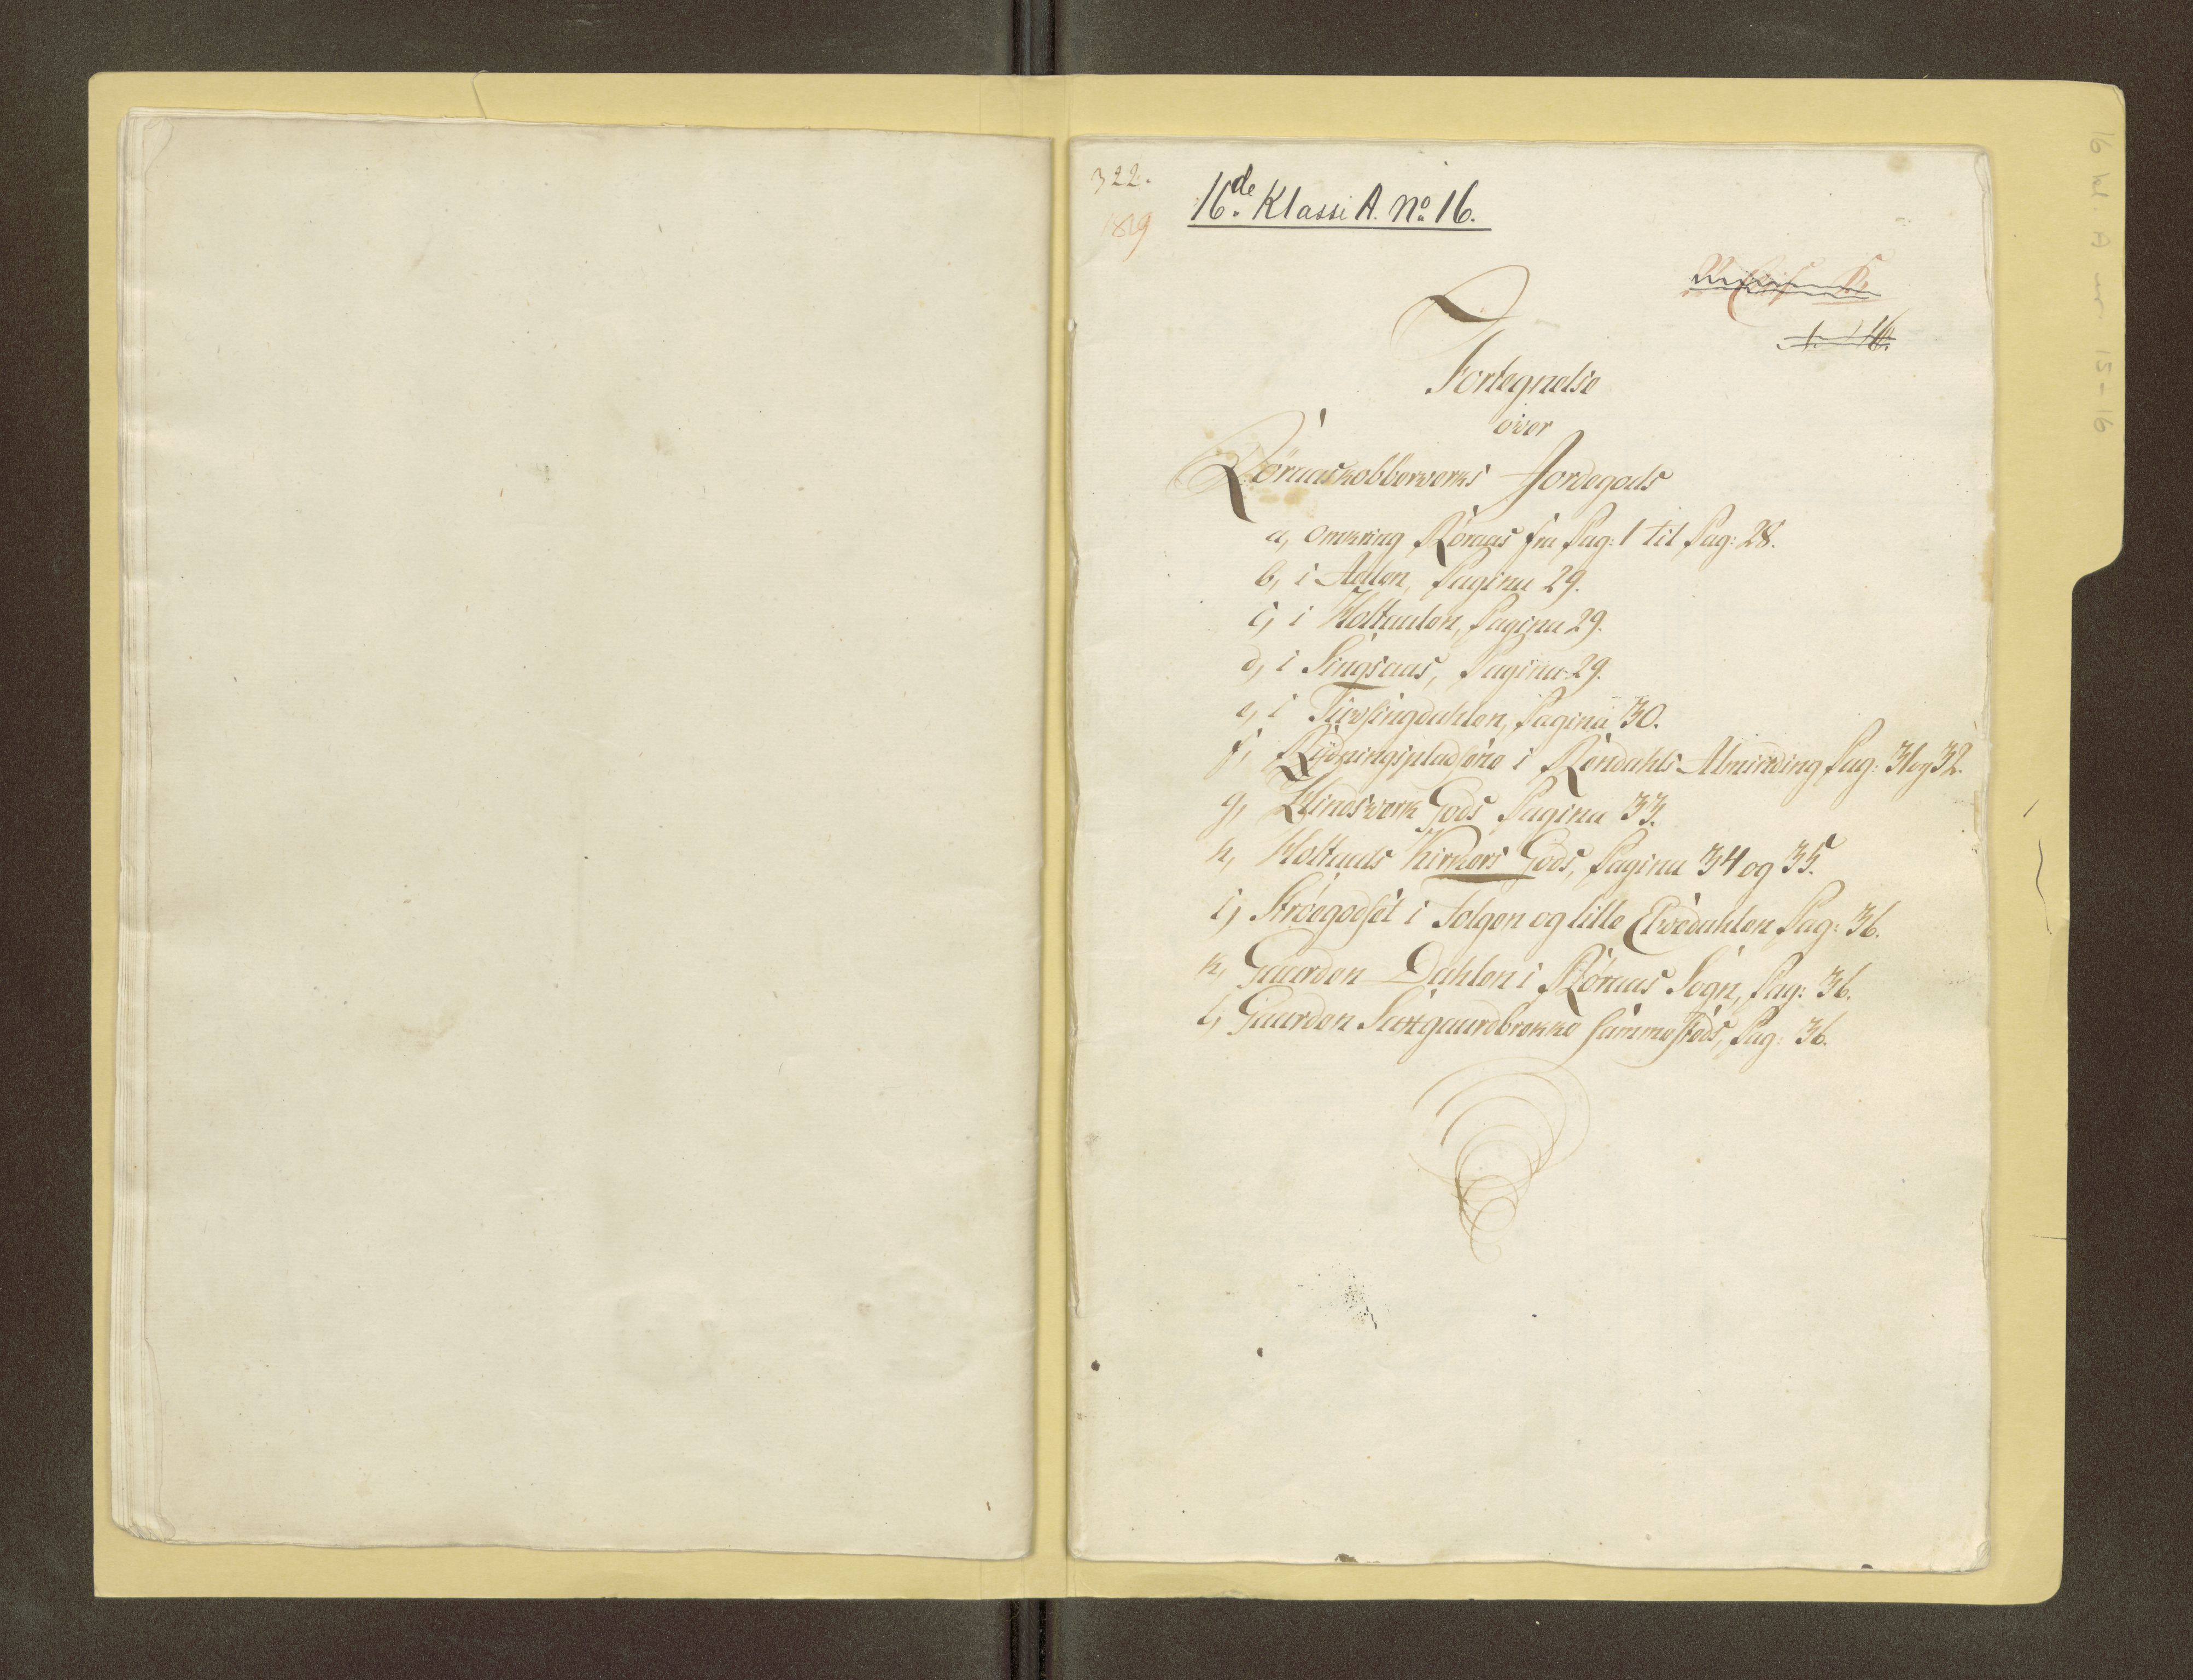 322.
1819
16de Klasse A. No. 16.
A. 16.
Fortegnelse
over
Röraaskobberverks Jordegods
a, omkring Röraas fra Pag: 1 til Pag: 28.
b, i Aalen, Pagina 29.
c, i Holtaalen, Pagina 29.
d, i Singsaas, Pagina 29.
e, i Tydsingdahlen, Pagina 30.
f, Rydningspladsene i Rendahls Alminding Pag: 31 og 32.
g, Qvindsverk Gods Pagina 33.
h, Holtaals Kirkers Gods, Pagina 34 og 35.
i, Ströegodset i Tolgen og lille Elvedahlen Pag: 36.
k, Gaarden Dahlen i Röraas Sogn, Pag: 36.
l, Gaarden Sustgaardbrekke sammesteds, Pag: 36.
16 kl. A nr 15-16